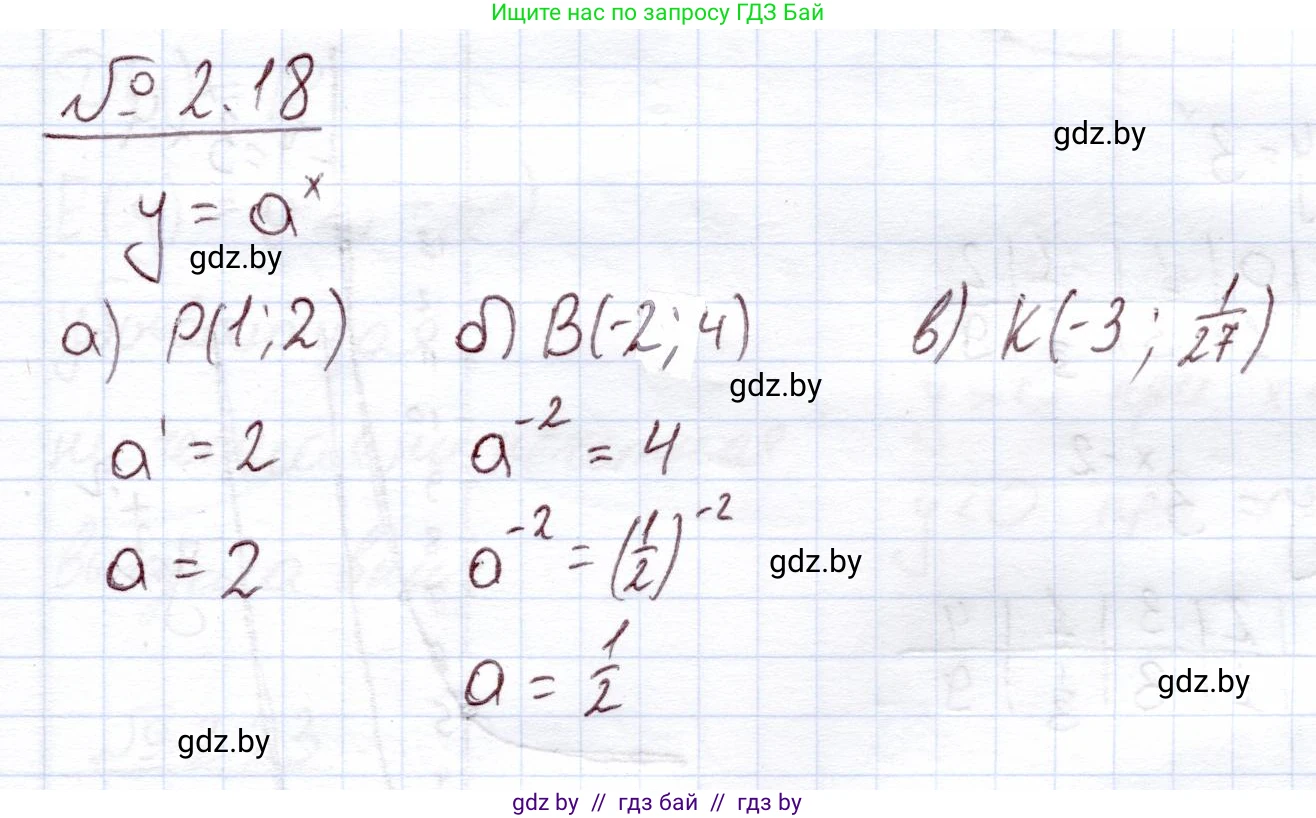 Ищите нас по запросу ГДЗ Бай
№ 2.18
gdz.by
y = a^x
gdz.by
а) P(1; 2) б) B(-2; 4) в) K(-3; 1/27)
gdz.by
a^1 = 2 a^-2 = 4
a = 2 a^-2 = (1/2)^-2 gdz.by
a = 1/2
gdz.by
gdz.by
gdz by // гдз бай // гдз by